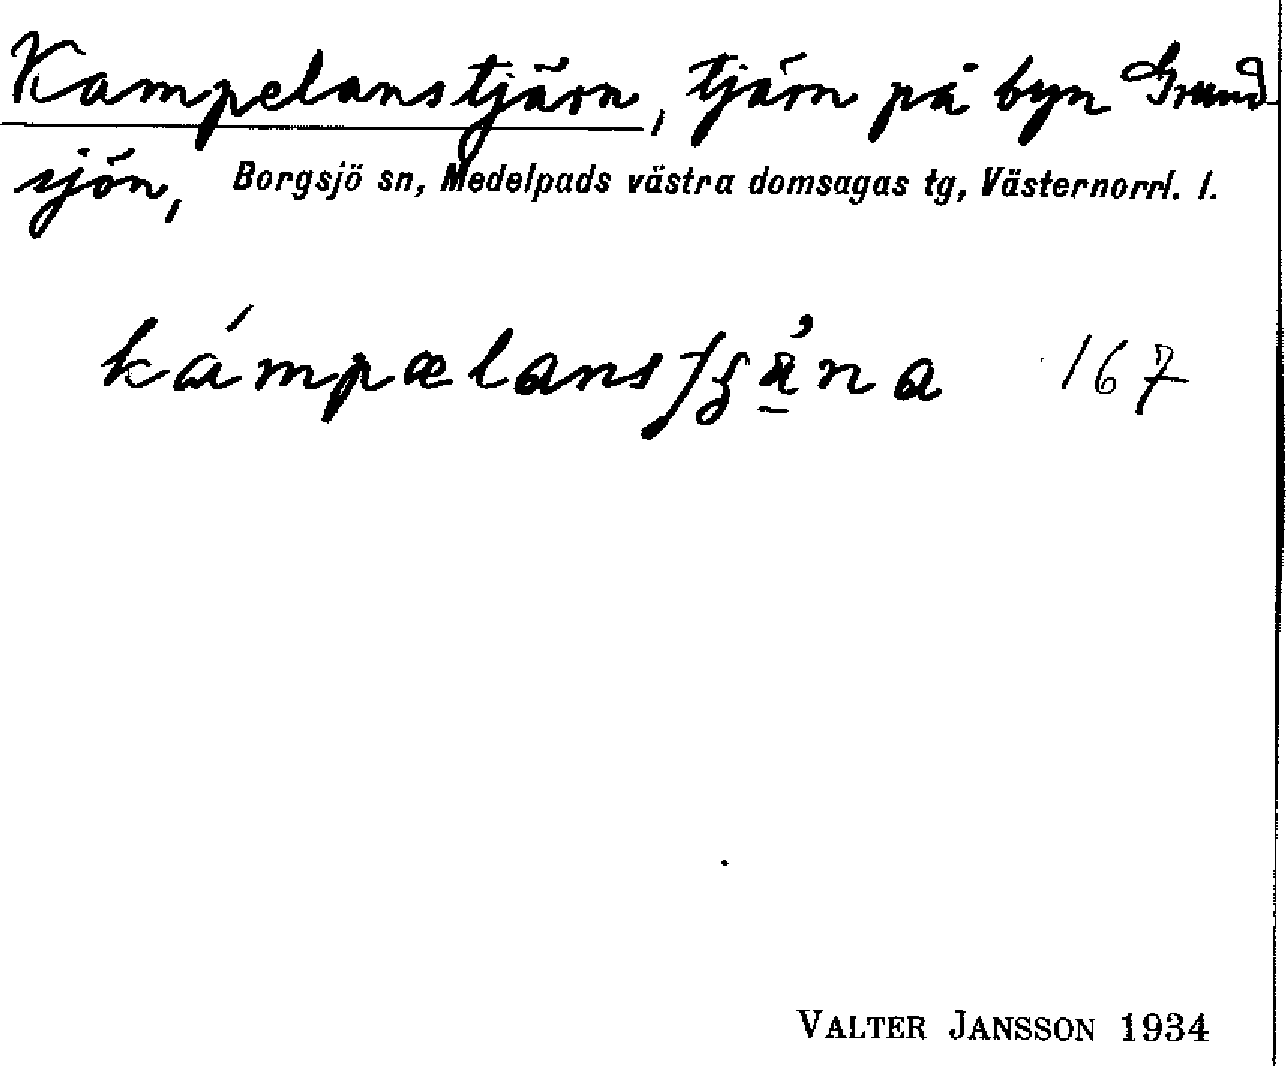 Kampelanstjärn, tjärn på byn Grund-
sjön, Borgsjö sn, Medelpads västra domsagas tg, Västernorrl. l.
167
VALTER JANSSON 1934